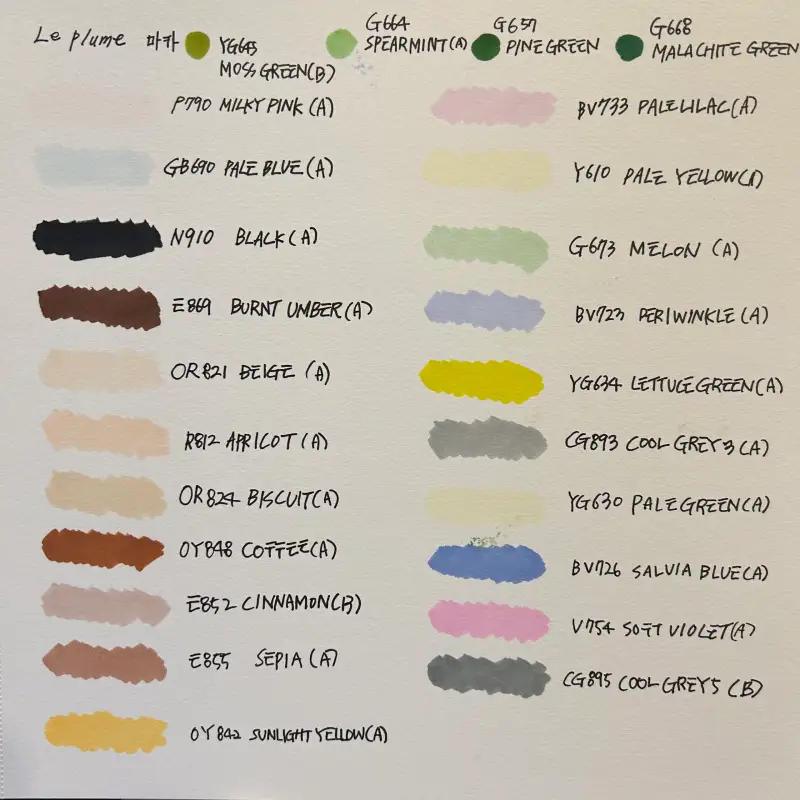 Le plume 마카
YG645
MOSS GREEN(B)
G664
SPEARMINT(A)
G657
PINE GREEN
G668
MALACHITE GREEN
P790 MILKY PINK (A)
GB690 PALE BLUE (A)
N910 BLACK (A)
E869 BURNT UMBER (A)
OR821 BEIGE (A)
R812 APRICOT (A)
OR824 BISCUIT(A)
OY848 COFFEE(A)
E852 CINNAMON(B)
E855 SEPIA (A)
OY842 SUNLIGHT YELLOW(A)
BV733 PALE LILAC(A)
Y610 PALE YELLOW(A)
G673 MELON (A)
BV723 PERIWINKLE (A)
YG634 LETTUCE GREEN(A)
CG893 COOL GREY 3 (A)
YG630 PALE GREEN(A)
BV726 SALVIA BLUE(A)
V754 SOFT VIOLET(A)
CG895 COOL GREY 5 (B)